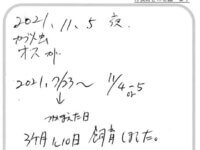 2021.11.5 夜
カブト虫
オス
2021.7/23〜 11/4-5
↓
つかまえた日
3ヶ月と10日 飼育しました。